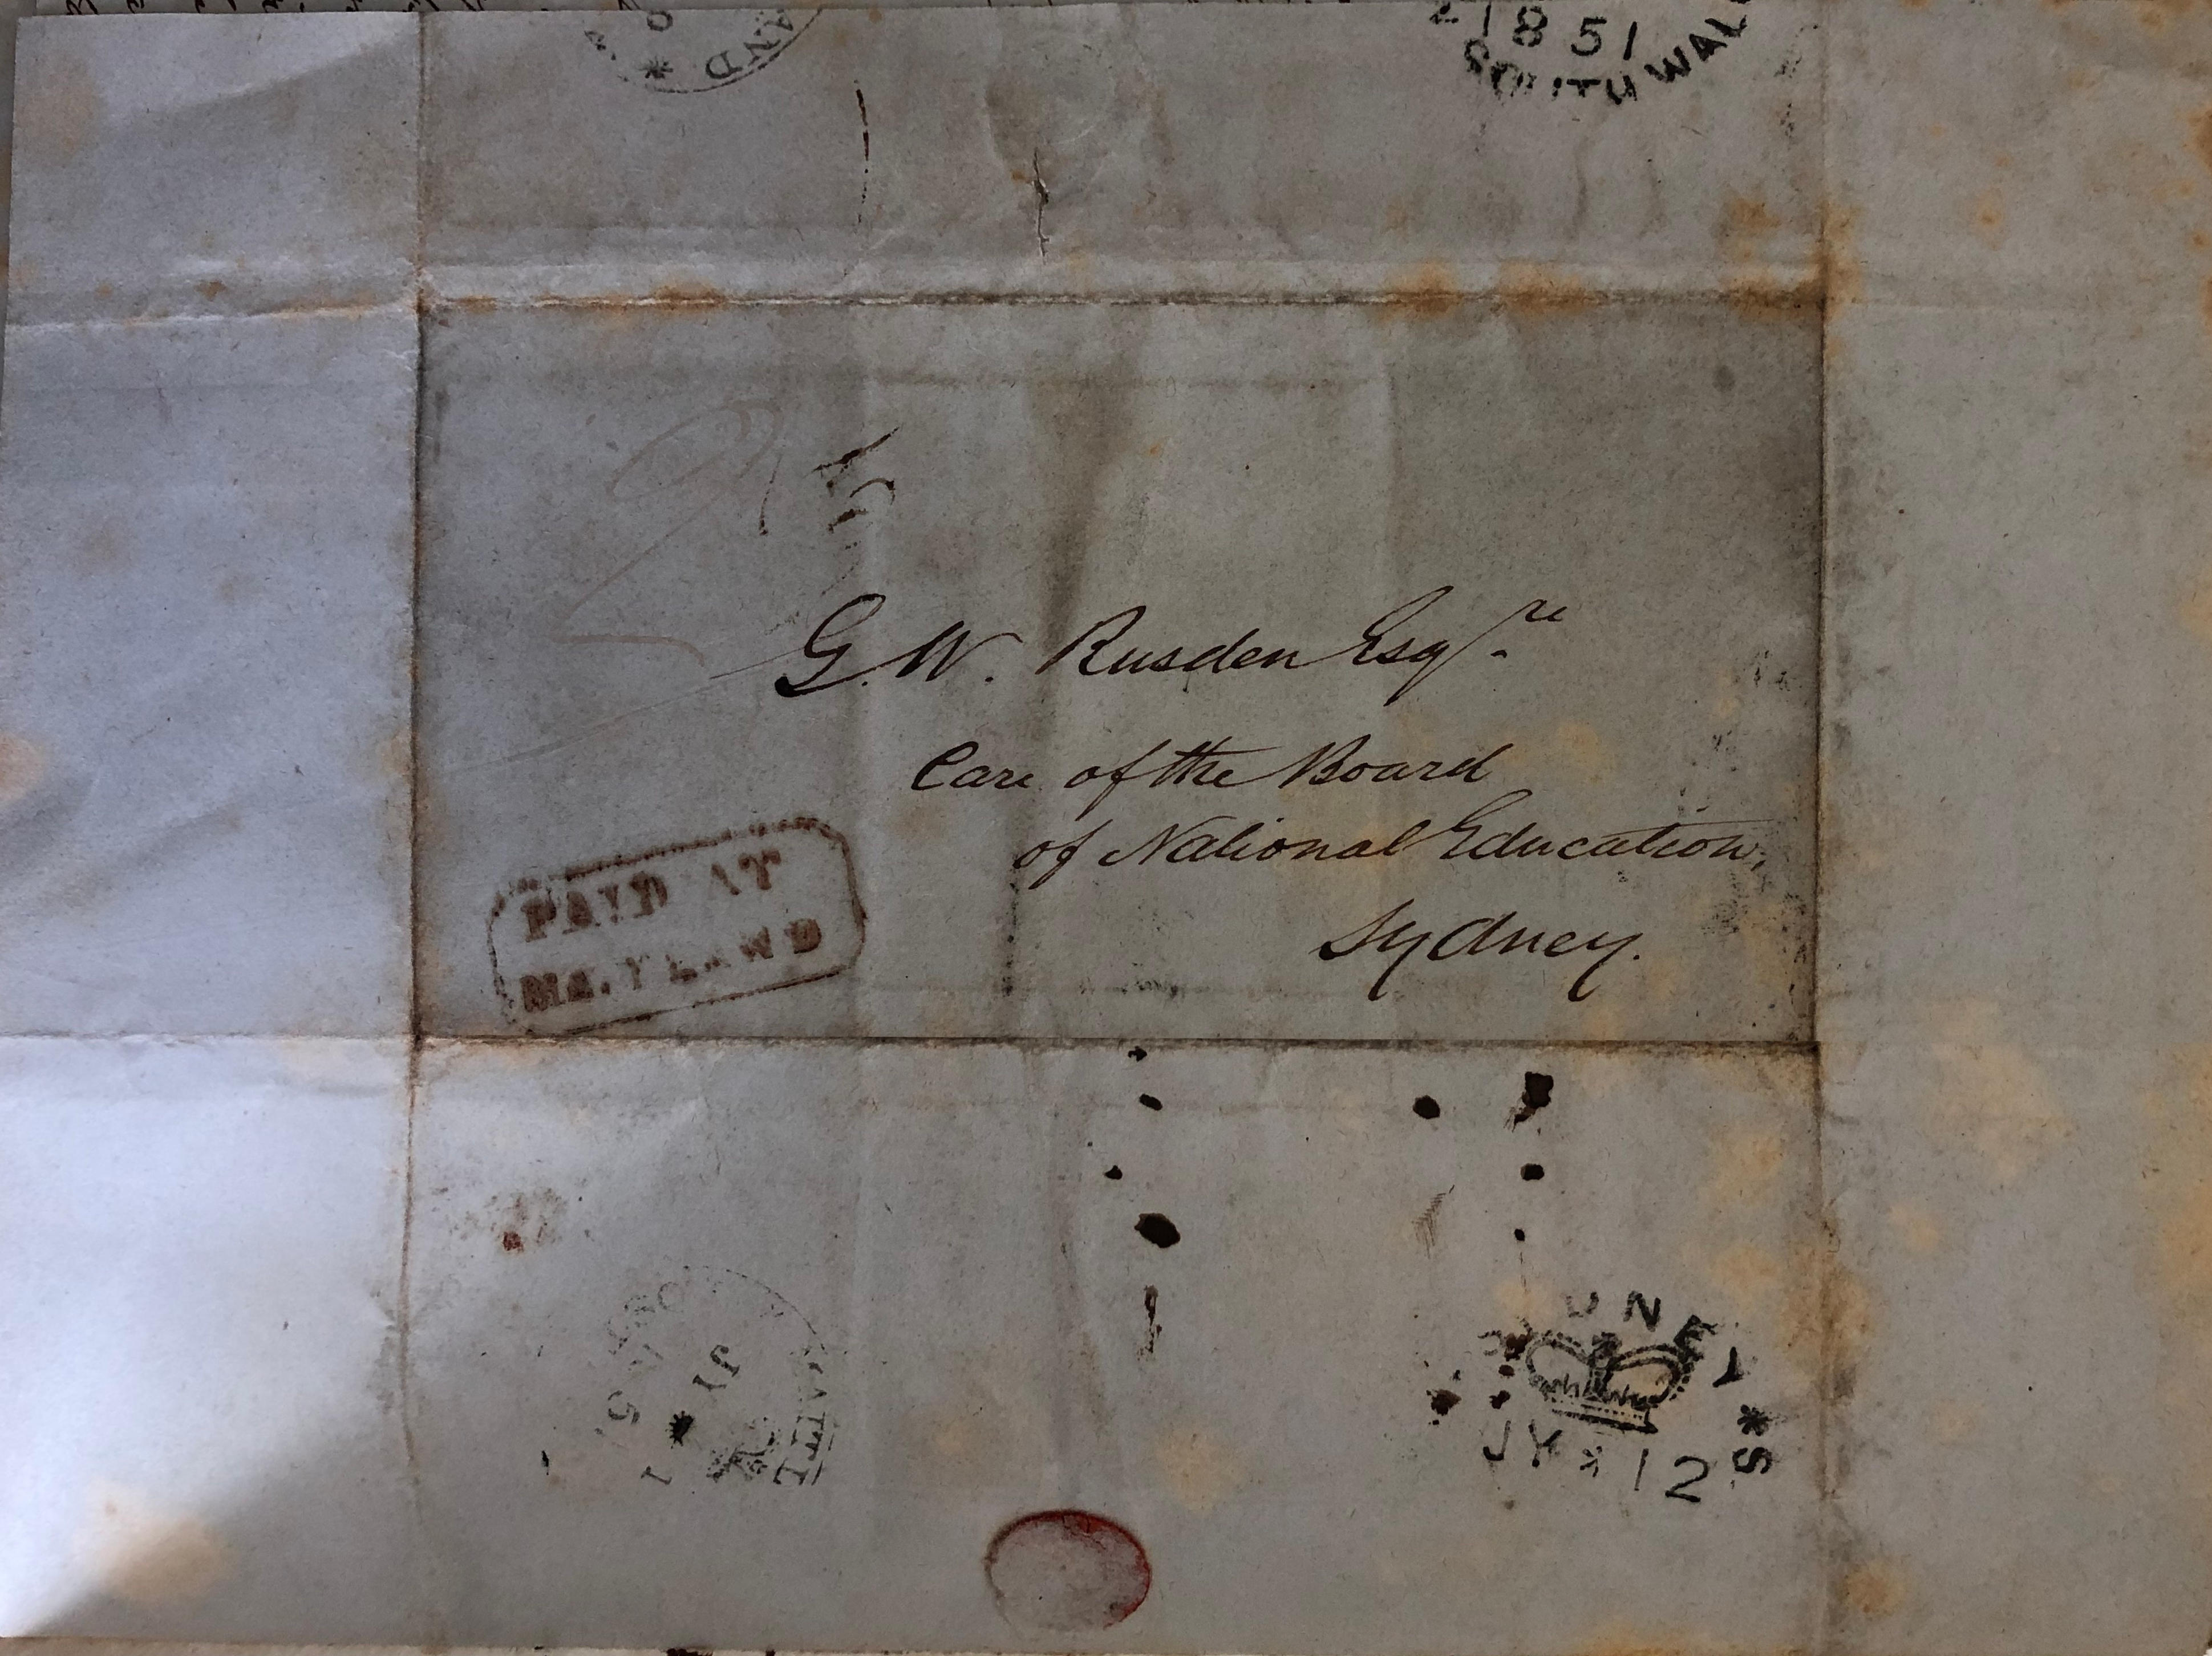 AND
1851
SOUTH WAL
G. W. Rusden Esqre
Care of the Board
of National Education,
Sydney.
PAID AT
MAITLAND
JY
SYDNEY
JY * 12